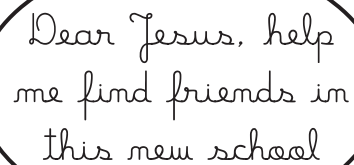 Dear Jesus, help
me find friends in
this new school